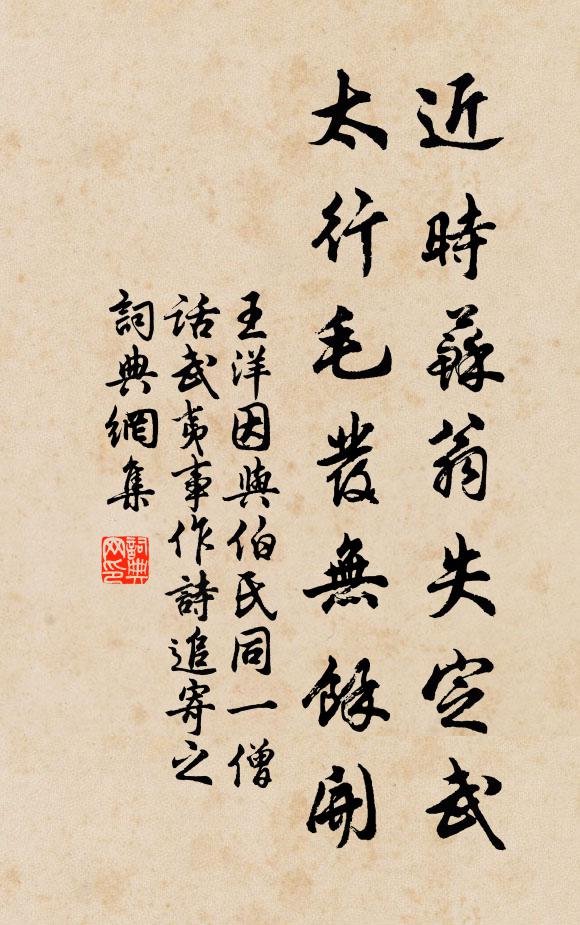 近時蘇翁失定武
太行毛發無餘開
王洋因與伯氏同一僧
話武夷事作詩追寄之
詞典網集
詞典
網印